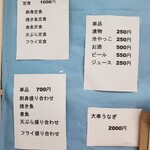 定食 1000円
刺身定食
焼き魚定食
煮魚定食
天ぷら定食
フライ定食
単品
漬物 250円
冷やっこ 250円
お酒 500円
ビール 550円
ジュース 250円
単品 700円
刺身盛り合わせ
焼き魚
煮魚
天ぷら盛り合わせ
フライ盛り合わせ
大串うなぎ
2000円